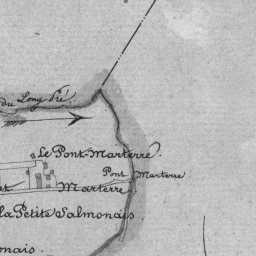 du Long Pré
Le Pont-Marterre.
Pont Marterre
et Marterre
la Petite Salmonais.
onais.